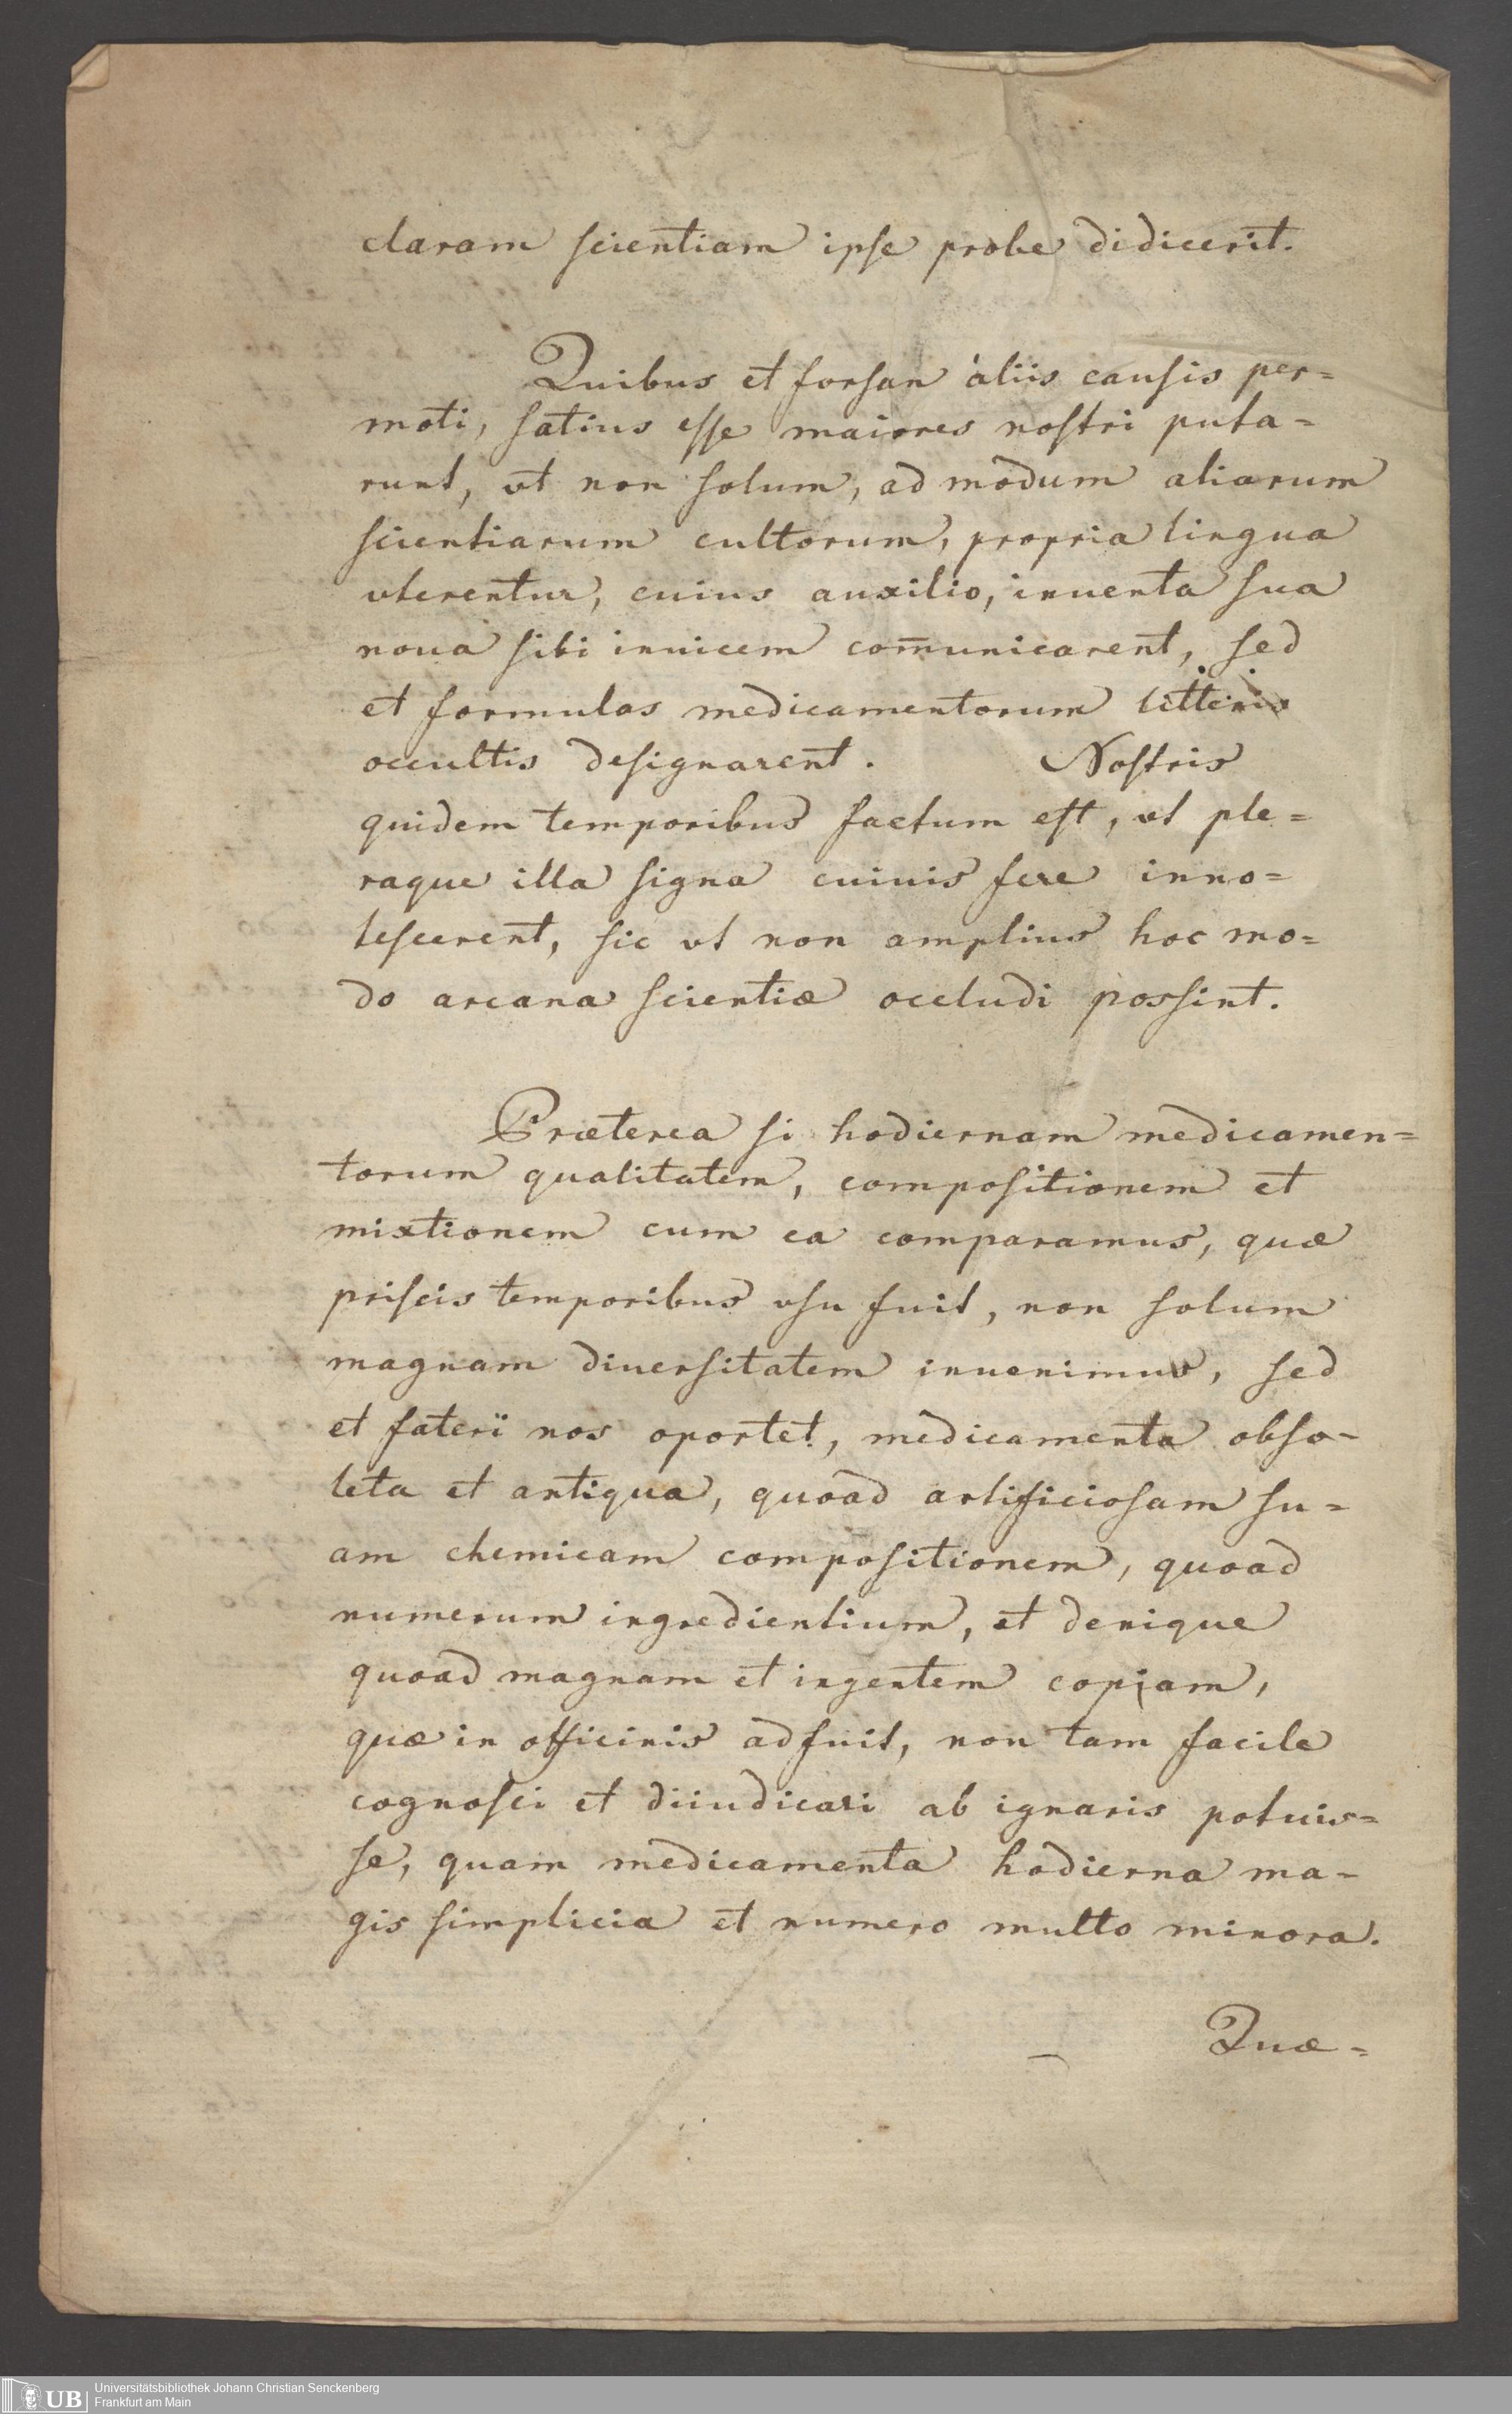 claram scientiam ipse probe didicerit.
Quibus et forsan aliis causis per=
moti, satius esse maiores nostri puta=
runt, ut non solum, ad modum aliarum
scientiarum cultorum, propria lingua
vterentur, cuius auxilio, inuenta sua
noua sibi inuicem com̄unicarent, sed
et formulas medicamentorum litteris
occultis designarent. Nostris
quidem temporibus factum est, vt ple=
raque illa signa cuiuis fere inno=
tescerent, sic vt non amplius hoc mo=
do arcana scientiæ occludi possint.
Præterea si hodiernam medicamen=
torum qualitatem, compositionem et
mixtionem cum ea comparamus, quæ
priscis temporibus vsu fuit, non solum
magnam diuersitatem inuenimus, sed
et fateri nos oportet, medicamenta obso=
leta et antiqua, quoad artificiosam su=
am chemicam compositionem, quoad
numerum ingredientium, et denique
quoad magnam et ingentem copiam,
quæ in officinis adfuit, non tam facile
cognosci et diiudicari ab ignaris potuis=
se, quam medicamenta hodierna ma=
gis simplicia et numero multo minora.
Quæ=
UB
Universitätsbibliothek Johann Christian Senckenberg
Frankfurt am Main